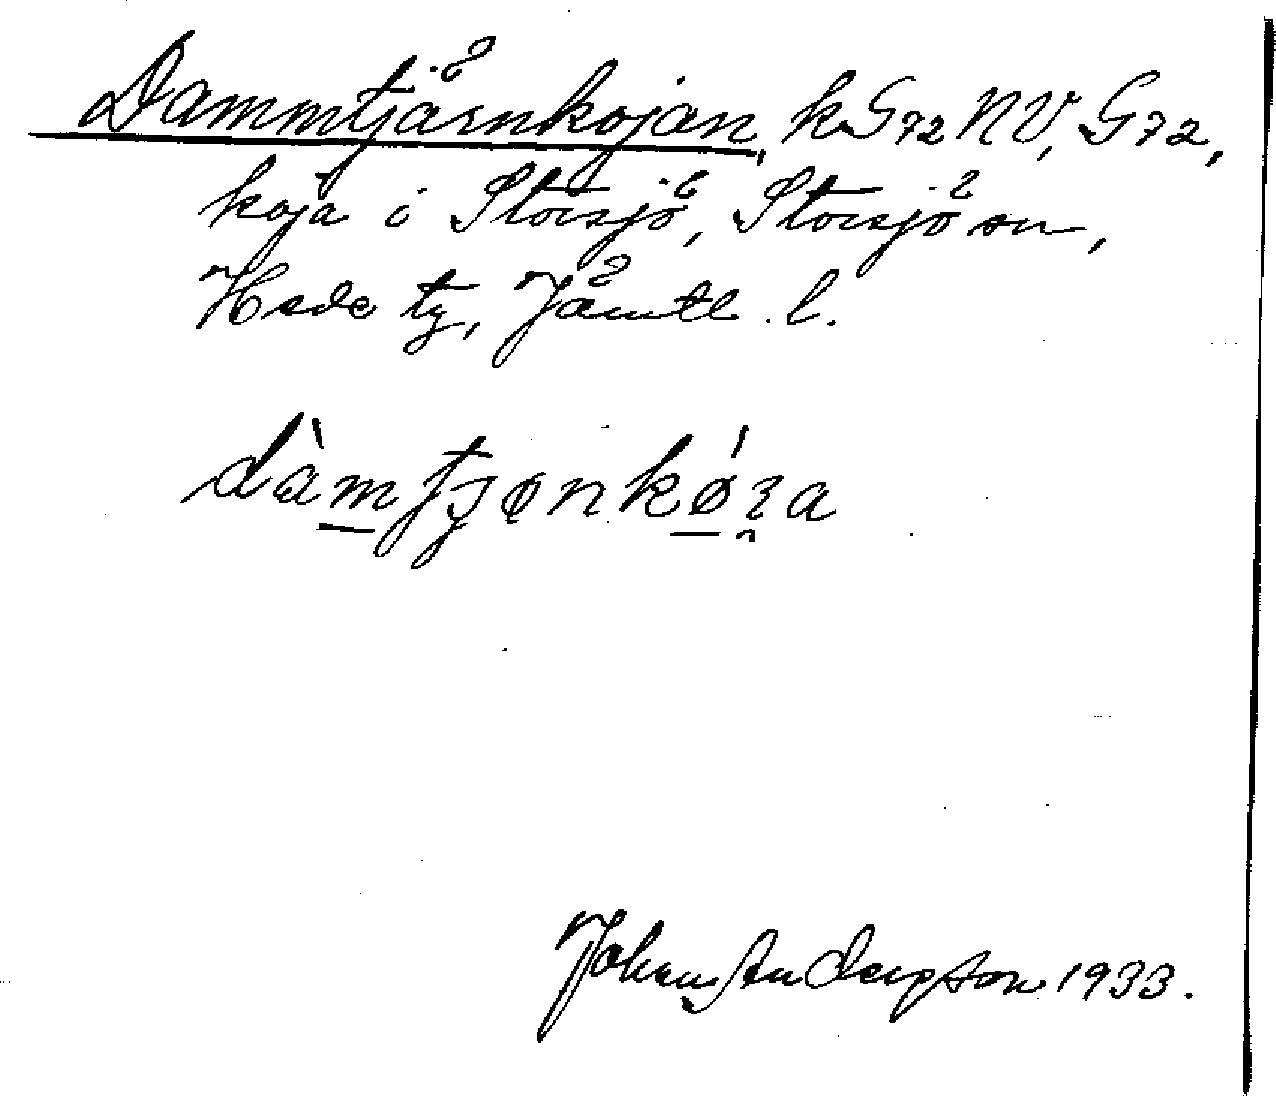 Dammtjärnkojan, k. G72 NV, G72,
koja i Storsjö, Storsjö sn,
Hede tg, Jämtl. l.
dàmtjɵnkǿɿa
Johan Anderson 1933.